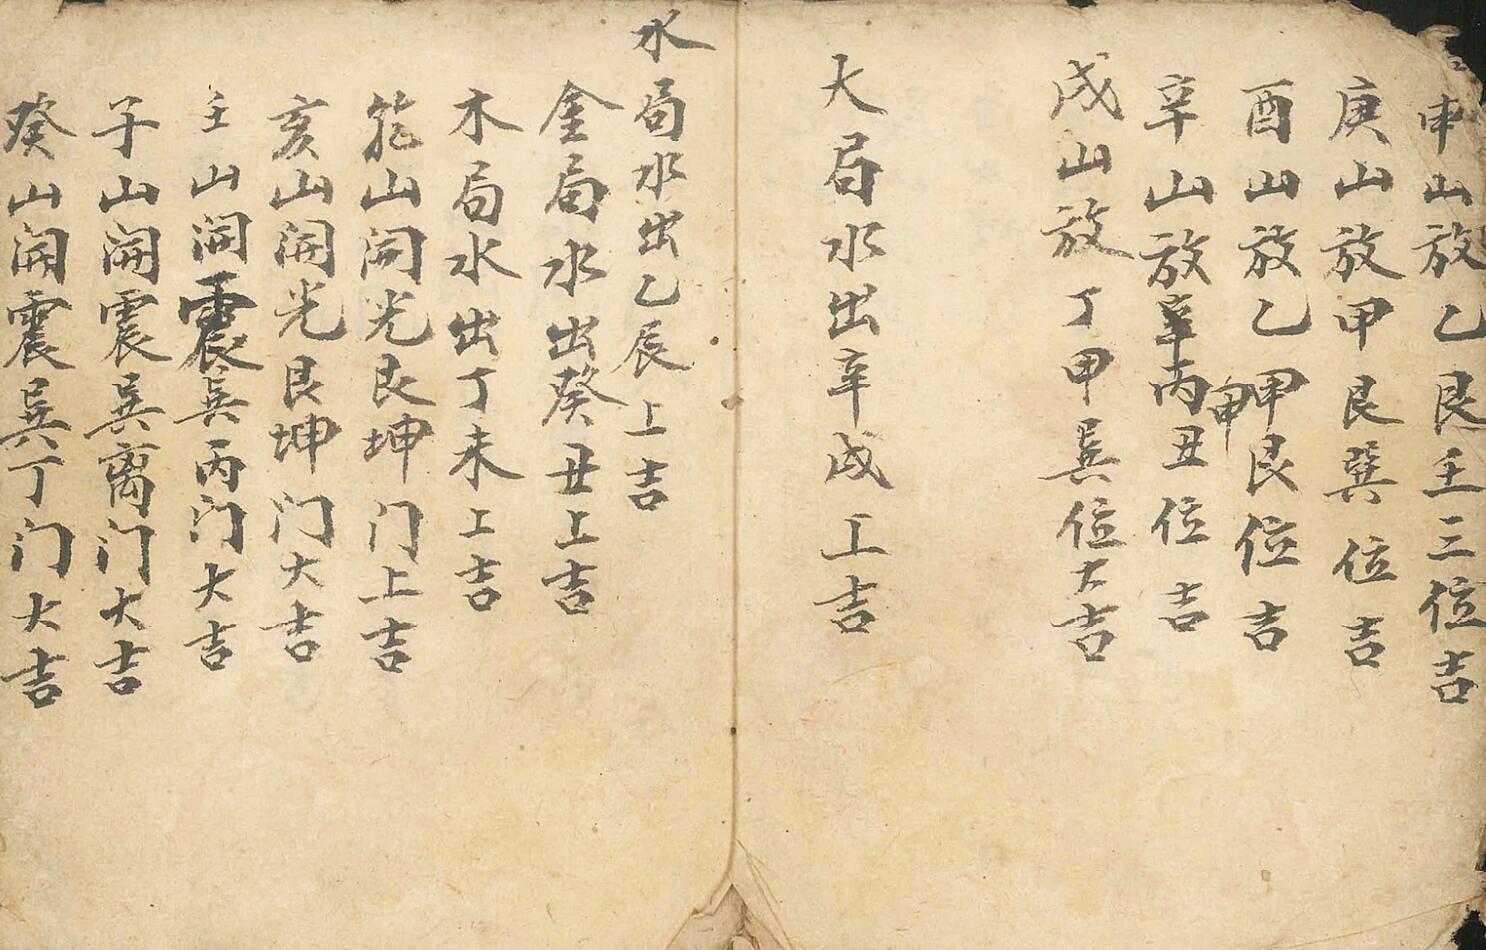 申山放乙艮壬三位吉
庚山放甲艮巽位吉
酉山放乙甲艮位吉
申
辛山放辛丙丑位吉
戌山放丁甲巽位大吉
大局水出辛戌上吉
水局水出乙辰上吉
金局水出癸丑上吉
木局水出丁未上吉
乾山開光艮坤门上吉
亥山開光艮坤门大吉
壬山開震巽丙门大吉
子山開震巽离门大吉
癸山開震巽丁门大吉